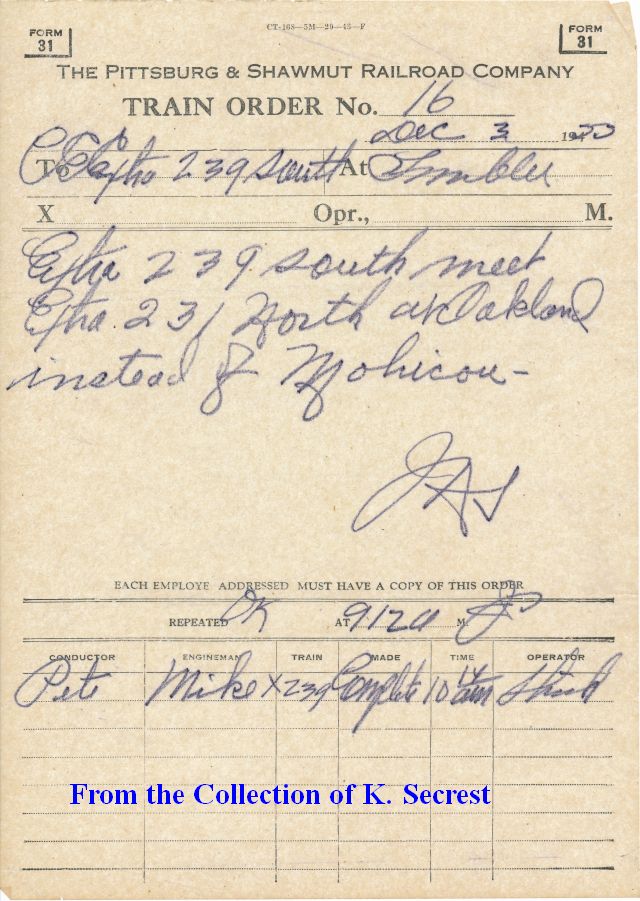 FORM 31
CT-168—5M—29—45—F
FORM 31
THE PITTSBURG & SHAWMUT RAILROAD COMPANY
TRAIN ORDER No. 16
Dec 3 1953
To C&E Extra 239 South At
X Opr., M.
Extra 239 south meet
Extra 231 North at Oakland
instead of Mohican-
JAS
EACH EMPLOYE ADDRESSED MUST HAVE A COPY OF THIS ORDER
REPEATED OK AT 912a M.
CONDUCTOR ENGINEMAN TRAIN MADE TIME OPERATOR
Pete Mike X239 Complete 10 am
From the Collection of K. Secrest